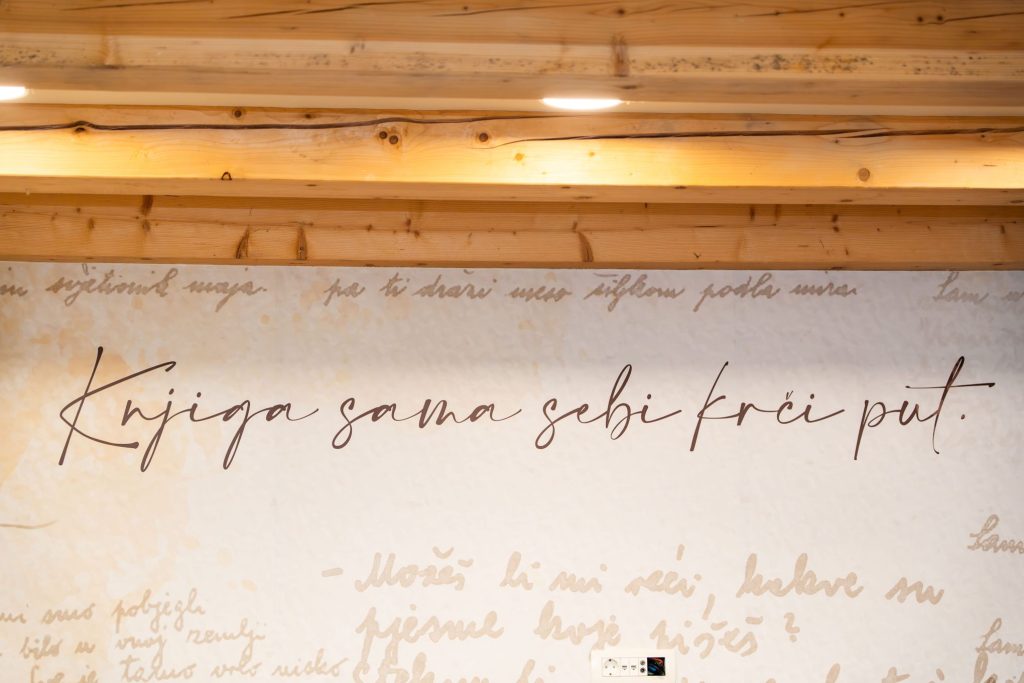 svjetionik maja. pa ti draži meso šiljkom podla mira. Sam
Knjiga sama sebi krči put.
Sam
- Možeš li mi reći, kakve su
smo pobjegli
pjesme koje pišeš?
bilo u ovoj zemlji
tamo vrlo nisko